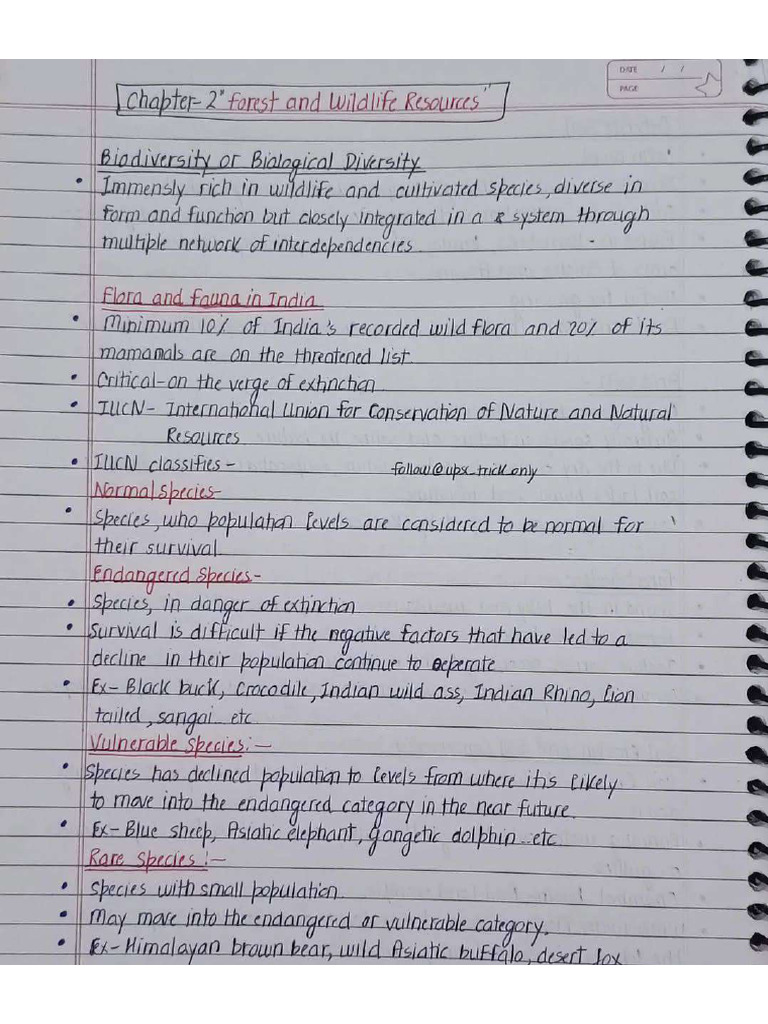 DATE / /
PAGE
Chapter-2 "Forest and Wildlife Resources"
Biodiversity or Biological Diversity
• Immensly rich in wildlife and cultivated species, diverse in
form and function but closely integrated in a system through
multiple network of interdependencies.
Flora and fauna in India
• Minimum 10% of India's recorded wild flora and 20% of its
mamamals are on the threatened list.
• Critical-on the verge of extinction.
• IUCN- International Union for Conservation of Nature and Natural
Resources
• IUCN classifies-
follow@upsx_trick_only
Normal species-
• Species, who population levels are considered to be normal for
their survival.
Endangered Species-
• Species, in danger of extinction
• Survival is difficult if the negative factors that have led to a
decline in their population continue to operate
• Ex- Black buck, Crocodile, Indian wild ass, Indian Rhino, lion
tailed, sangai.. etc.
Vulnerable Species:-
• Species has declined population to levels from where it is likely
to move into the endangered category in the near future.
• Ex- Blue sheep, Asiatic elephant, gangetic dolphin.. etc.
Rare Species:-
• Species with small population.
• May move into the endangered or vulnerable category.
• Ex-Himalayan brown bear, wild Asiatic buffalo, desert fox